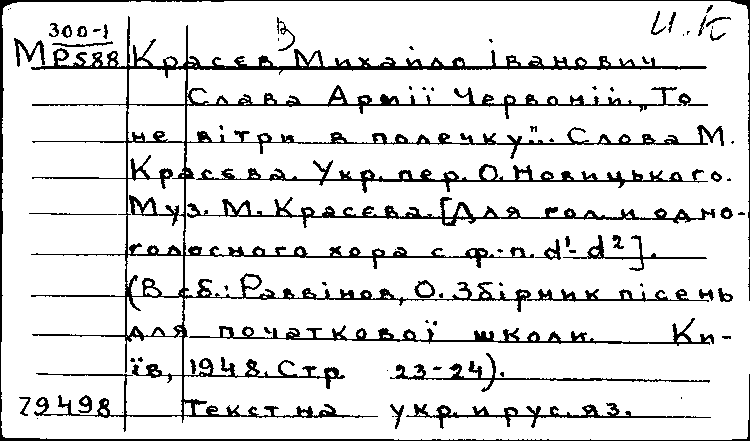 И.К
300-1
В
М Р588 Красєв, Михайло Іванович
Слава Армії Червоній. „То
не вітри в полечку"... Слова М.
Красєва. Укр. пер. О. Новицького.
Муз. М. Красєва. [Для гол. и одно-
голосного хора с ф.-п. d¹- d²].
(В сб.: Раввінов, О. Збірник пісень
для початкової школи. Ки-
їв, 1948. Стр 23-24).
79498 Текст на укр. и рус. яз.